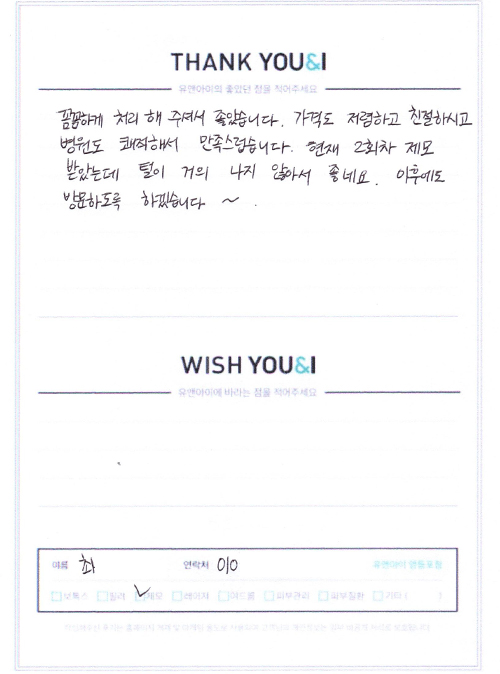 THANK YOU&I
유앤아이의 좋았던 점을 적어주세요
꼼꼼하게 처리 해 주셔서 좋았습니다. 가격도 저렴하고 친절하시고
병원도 쾌적해서 만족스럽습니다. 현재 2회차 제모
받았는데 털이 거의 나지 않아서 좋네요. 이후에도
방문하도록 하겠습니다 ~ .
WISH YOU&I
유앤아이에 바라는 점을 적어주세요
이름 최 연락처 010 유앤아이 영등포점
보톡스 필러 제모 레이저 여드름 피부관리 피부질환 기타 ( )